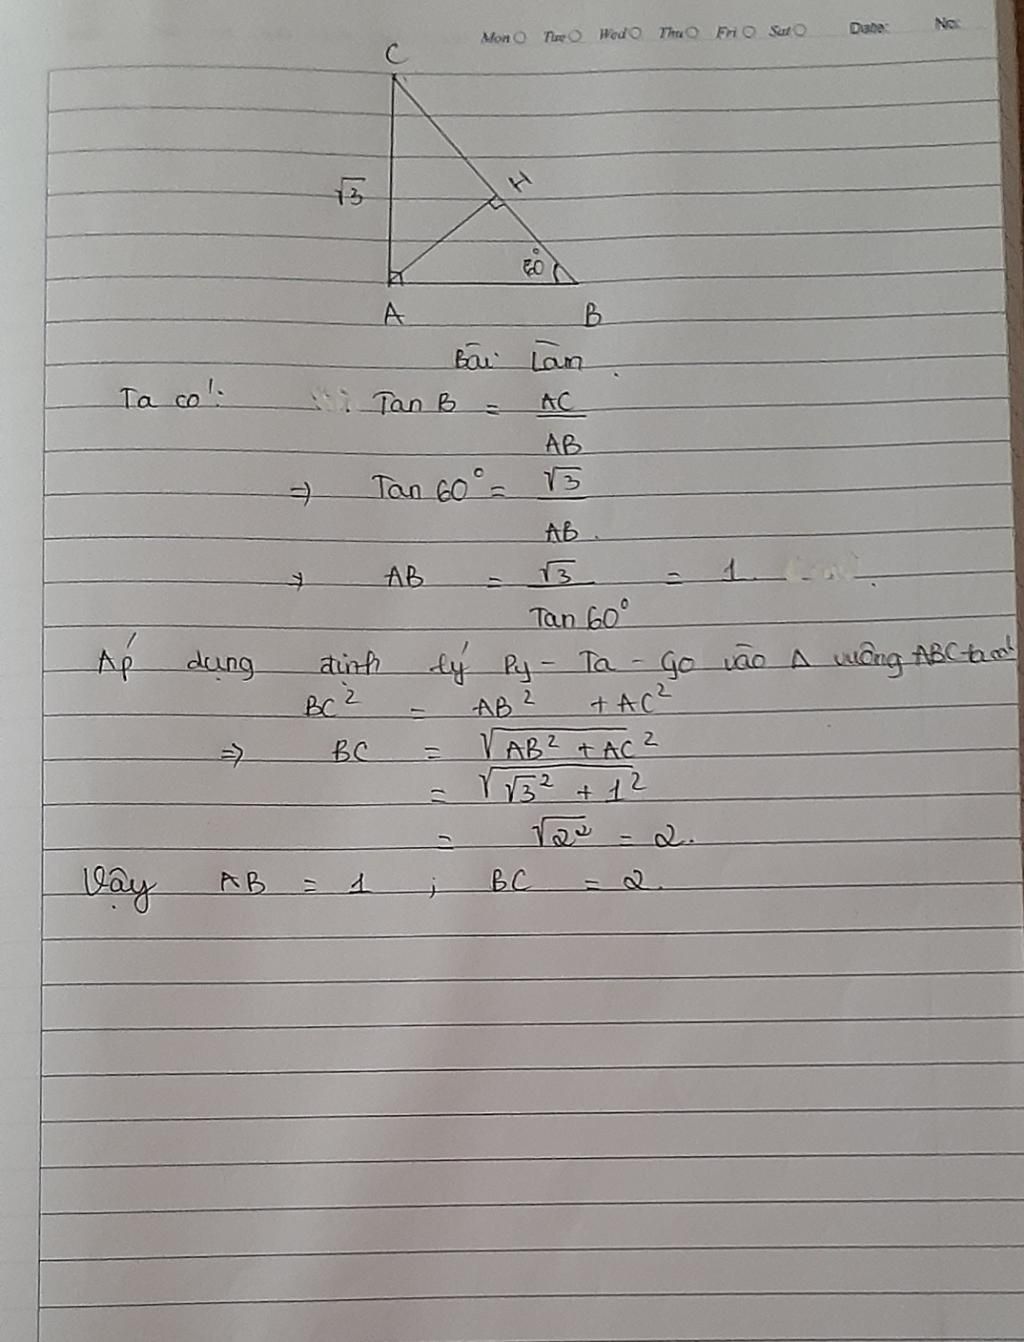 Mon Tue Wed Thu Fri Sat Date: No:
C
√3
H
60°
A B
Bài Làm
Ta có: Tan B = AC
AB
=> Tan 60° = √3
AB.
=> AB = √3 = 1
Tan 60°
Áp dụng định lý Py - Ta - Go vào Δ vuông ABC ta có
BC² = AB² + AC²
=> BC = √AB² + AC²
= √√3² + 1²
= √2² = 2.
Vậy AB = 1 ; BC = 2.